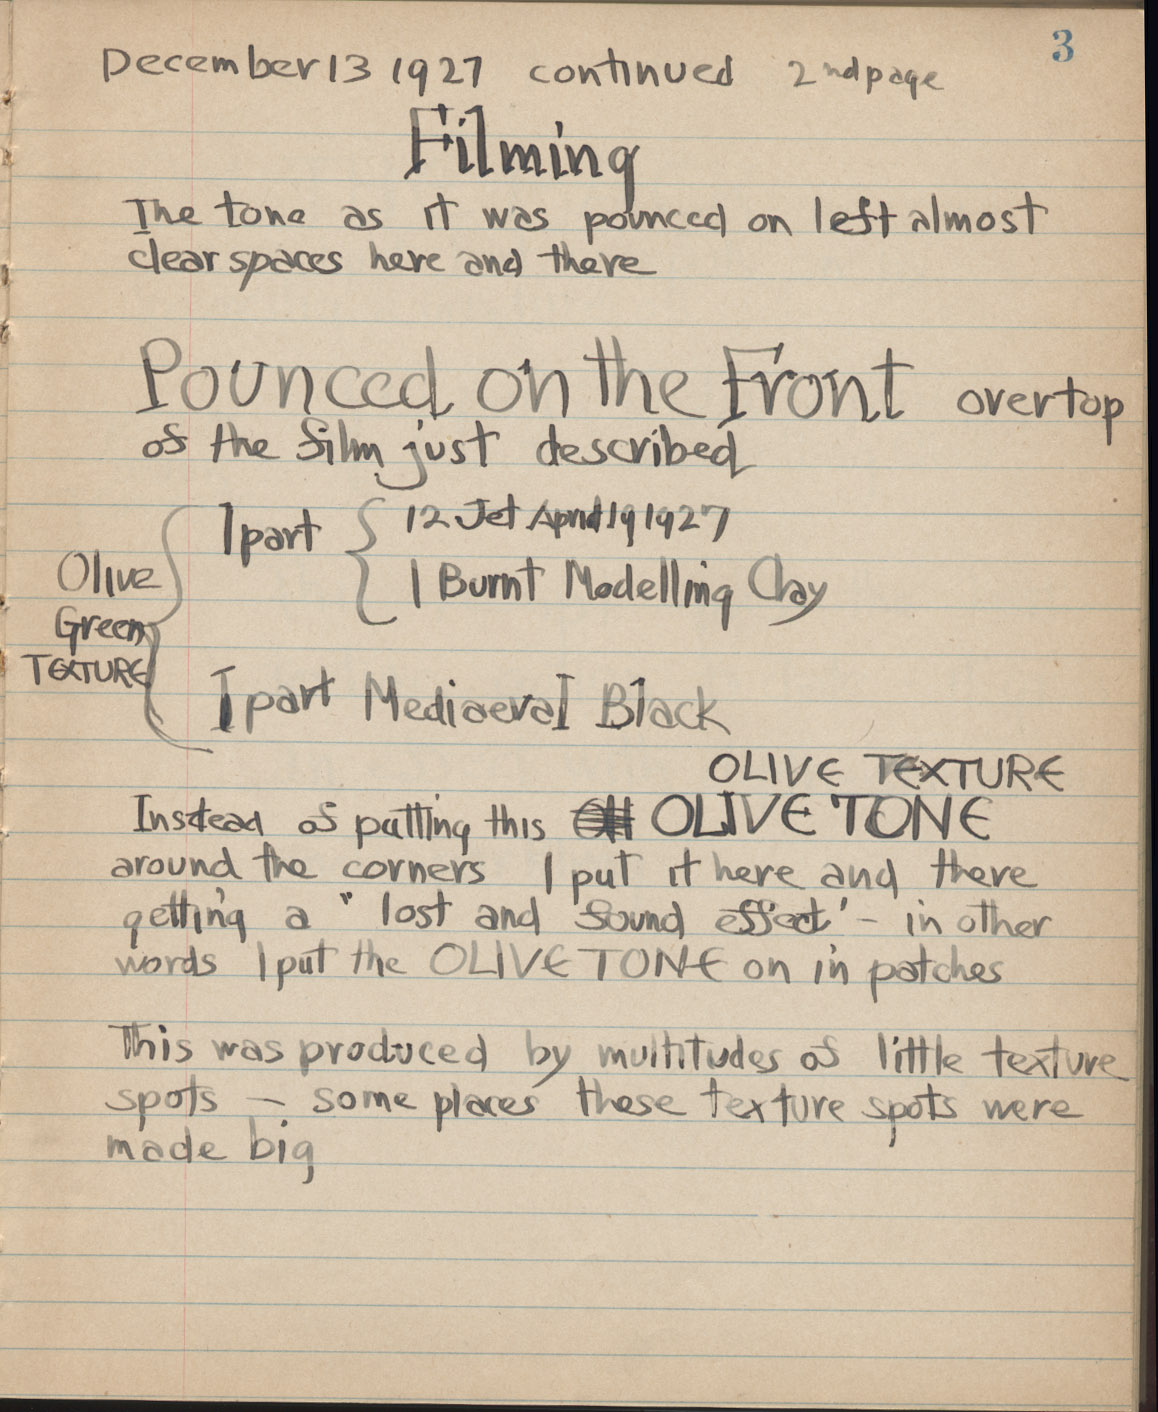 3
December 13 1927 continued 2nd page
Filming
The tone as it was pounced on left almost
clear spaces here and there
Pounced on the Front overtop
of the film just described
1 part { 12 Jet April 19 1927
1 Burnt Modelling Clay
Olive
Green
TEXTURE
1 part Mediaeval Black
OLIVE TEXTURE
Instead of putting this OLIVE TONE
around the corners I put it here and there
getting a "lost and found effect' - in other
words I put the OLIVE TONE on in patches
This was produced by multitudes of little texture
spots — some places these texture spots were
made big